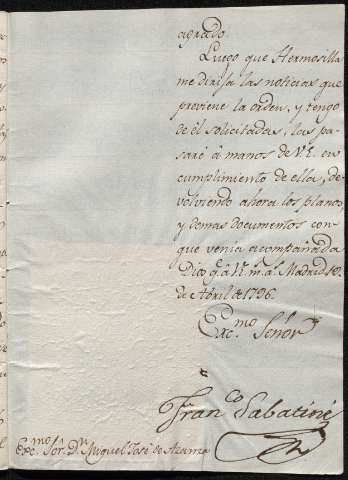 agrado.
Luego que Hermosilla
me dirija las noticias que
previene la orden, y tengo
de él solicitadas, las pa-
saré à manos de V.E. en
cumplimiento de ella, de-
volviendo ahora los planos,
y demas documentos con
que venia acompañada
Dios g.e à V.E. m.s a.s Madrid 10.
de Abril de 1796.
Exc.mo Señor
Fran.co Sabatini
Exc.mo Sor. Dn. Miguel José de Azanza